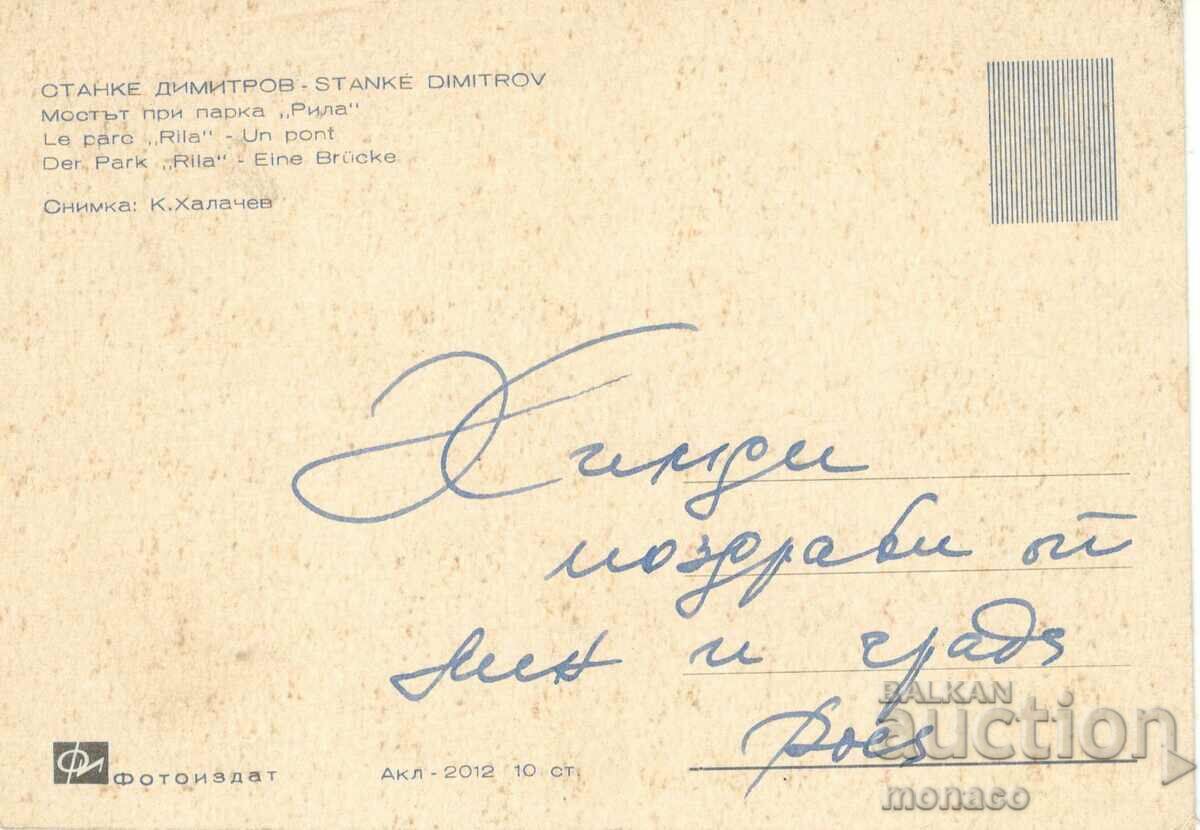 СТАНКЕ ДИМИТРОВ - STANKÉ DIMITROV
Мостът при парка „Рила"
Le parc „Rila" - Un pont
Der Park „Rila" - Eine Brücke
Снимка: К.Халачев
поздрави от
и града
BALKAN
auction
monaco
ФИ Фотоиздат
Акл - 2012 10 ст.